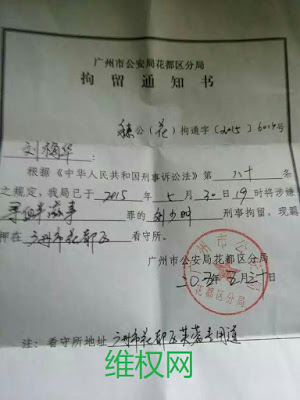 广州市公安局花都区分局
拘留通知书
公(花)拘通字〔2015〕号
刘梅华:
根据《中华人民共和国刑事诉讼法》第八十条
之规定,我局已于2015年5月30日19时将涉嫌
寻衅滋事罪的刘少明刑事拘留,现羁
押在广州市花都区看守所。
广州市公安局花都区分局
二〇一五年五月三十日
注:看守所地址广州市花都区
维权网